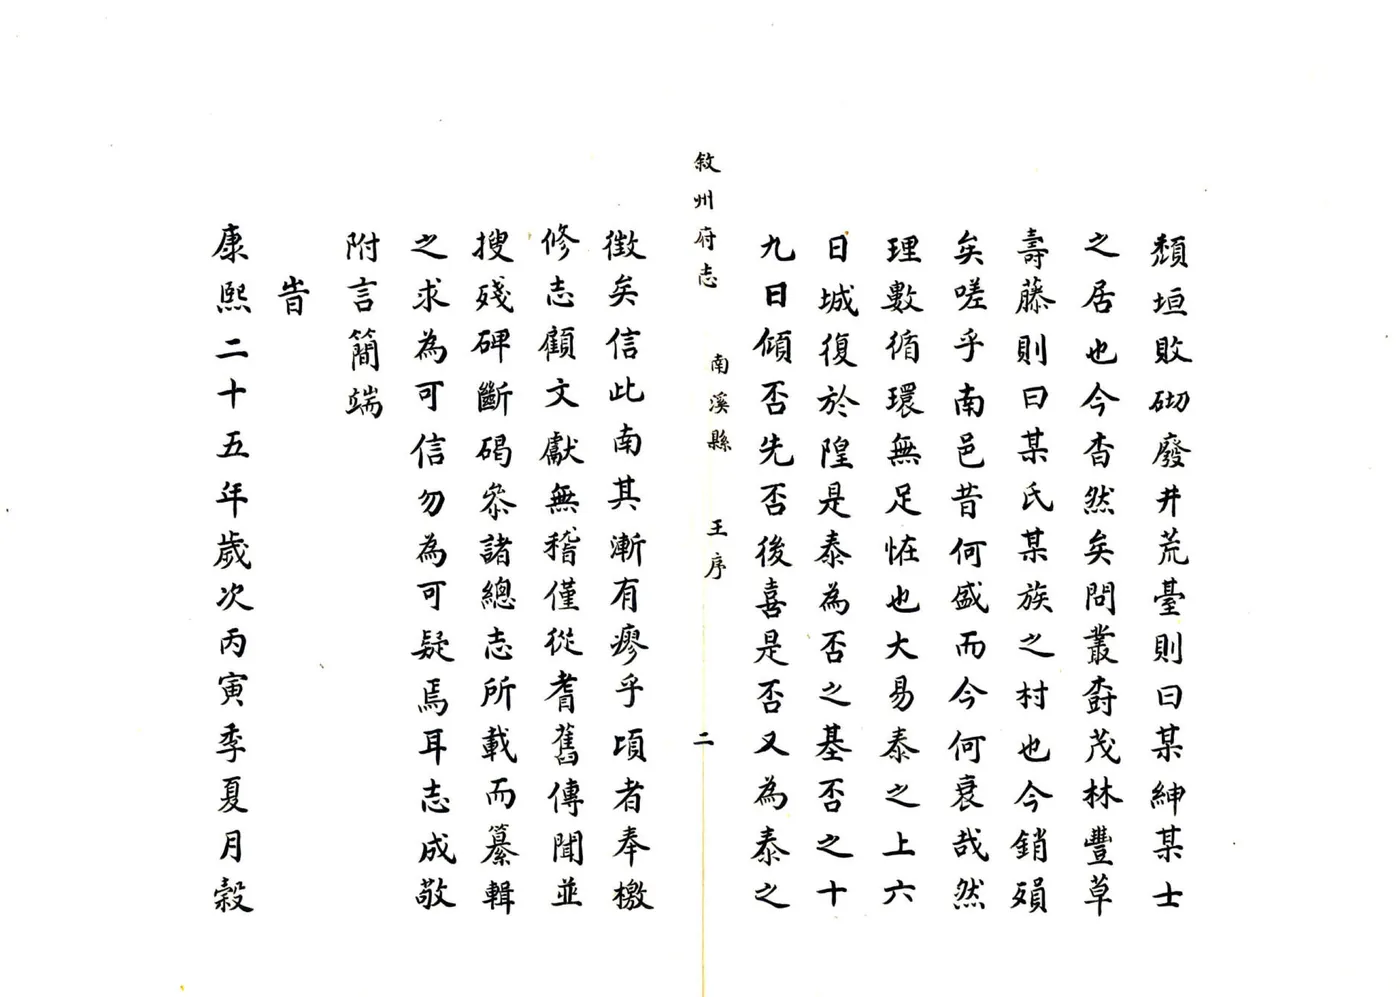 頹垣敗砌廢井荒臺則曰某紳某士
之居也今杳然矣問叢尌茂林豐草
壽藤則曰某氏某族之村也今銷殞
矣嗟乎南邑昔何盛而今何衰哉然
理數循環無足恠也大易泰之上六
曰城復於隍是泰為否之基否之十
九曰傾否先否後喜是否又為泰之
敘州府志 南溪縣 王序 二
徵矣信此南其漸有瘳乎頃者奉檄
修志顧文獻無稽僅從耆舊傳聞並
搜殘碑斷碣叅諸總志所載而纂輯
之求為可信勿為可疑焉耳志成敬
附言簡端
旹
康熙二十五年歲次丙寅季夏月穀